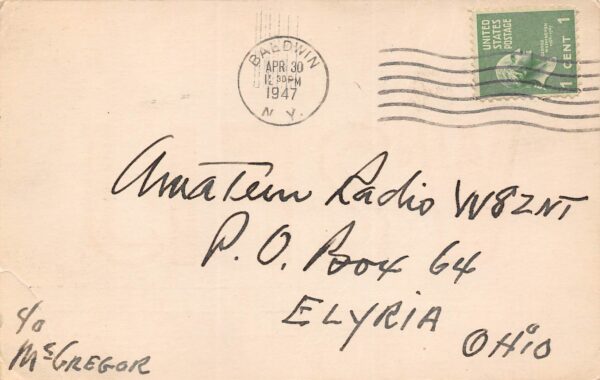 BALDWIN
APR 30
12 30 PM
1947
N.Y.
UNITED
STATES
POSTAGE
1 CENT 1
Amateur Radio W8ZNT
P.O. Box 64
ELYRIA
OHiO
c/o
McGREGOR